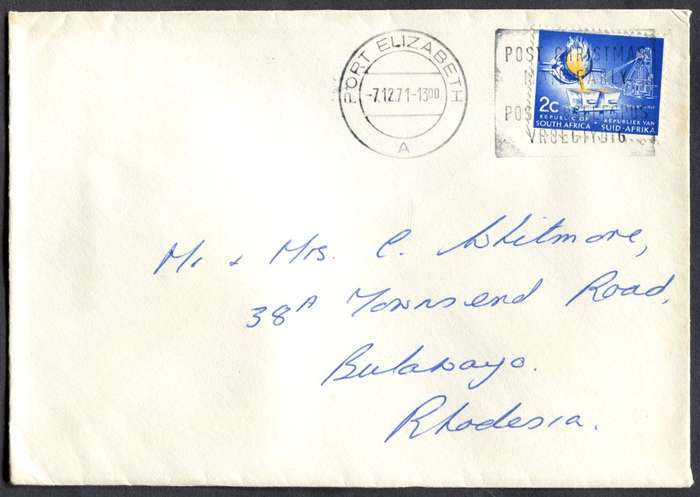 PORT ELIZABETH
-7.12.71-1300
A
POST CHRISTMAS
EARLY
POS
VROEGTYDIG
2c
REPUBLIC OF SOUTH AFRICA • REPUBLIEK VAN SUID-AFRIKA
Mr & Mrs. C. Whitmore,
38A Townsend Road,
Bulawayo.
Rhodesia.